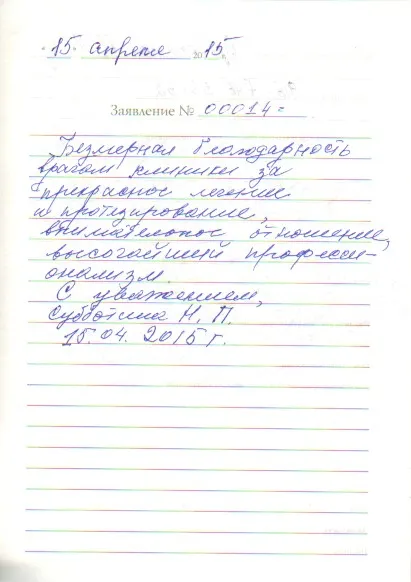 "15" апреля 2015 г.
Заявление № 00014=
Безмерная благодарность
врачам клиники за
прекрасное лечение
и протезирование,
внимательное отношение,
высочайший професси-
онализм.
С уважением,
Субботина Н. П.
15.04. 2015 г.